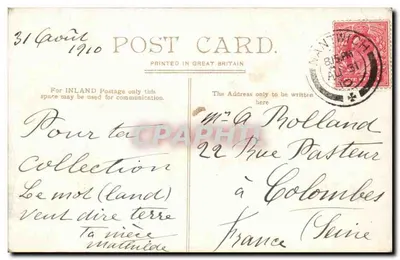 31 août
1910
POST CARD.
PRINTED IN GREAT BRITAIN
NANTWICH
8.15 PM
AU 31
10
For INLAND Postage only this
space may be used for communication.
The Address only to be written
here
Pour ta
collection
Le mot (land)
veut dire terre
ta mère
Mathilde
Mr. A Rolland
22 Rue Pasteur
à Colombes
France (Seine